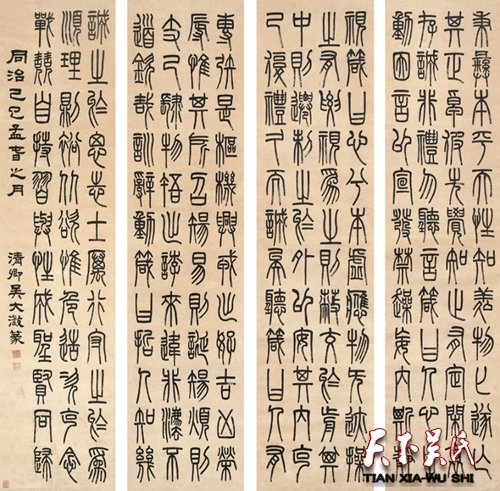 秉彝本乎天性知誘物化遂亡
其正卓彼先覺知止有定閑邪
存誠非禮勿聽言箴曰人心之
動因言以宣發禁躁妄內斯靜
視箴曰心兮本虛應物无迹操
之有要視為之則蔽交於前其
中則遷制之於外以安其內克
己復禮久而誠矣聽箴曰人有
專矧是樞機興戎出好吉凶榮
辱惟其所召傷易則誕傷煩則
支己肆物忤出悖來違非法不
道欽哉訓辭動箴曰哲人知幾
誠之於思志士厲行守之於為
順理則裕從欲惟危造次克念
戰兢自持習與性成聖賢同歸
同治己巳孟春之月 清卿吳大澂篆
天下吴氏
TIAN XIA WU SHI